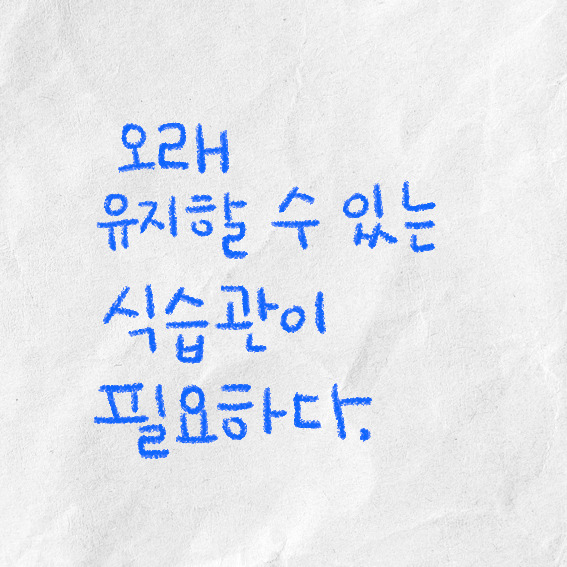 오래
유지할 수 있는
식습관이
필요하다.